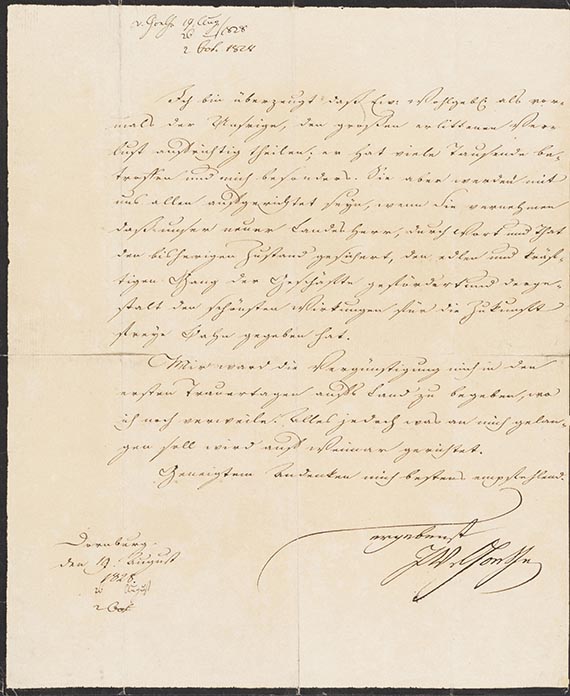 v. Goethe 19. Aug/1828
26
2 Oct. 1828
Ich bin überzeugt daß Ew: Wohlgeb. als vor-
mals der Unsrige, den großen erlittenen Ver-
lust aufrichtig theilen; er hat viele Tausende be-
troffen und mich besonders. Sie aber werden mit
uns allen aufgerichtet seyn, wenn Sie vernehmen
daß unser neuer Landesherr, durch Wort und That
den bisherigen Zustand gesichert, den edlen und kräf-
tigen Gang der Geschäfte gefördert und derge-
stalt den schönsten Wirkungen für die Zukunft
freye Bahn gegeben hat.
Mir ward die Vergünstigung mich in den
ersten Trauertagen aufs Land zu begeben, wo
ich noch verweile. Alles jedoch was an mich gelan-
gen soll wird auf Weimar gerichtet.
Geneigtem Andenken mich bestens empfehlend.
ergebenst
JWvGoethe
Dornburg
den 19. August
1828.
26 August
2 Oct